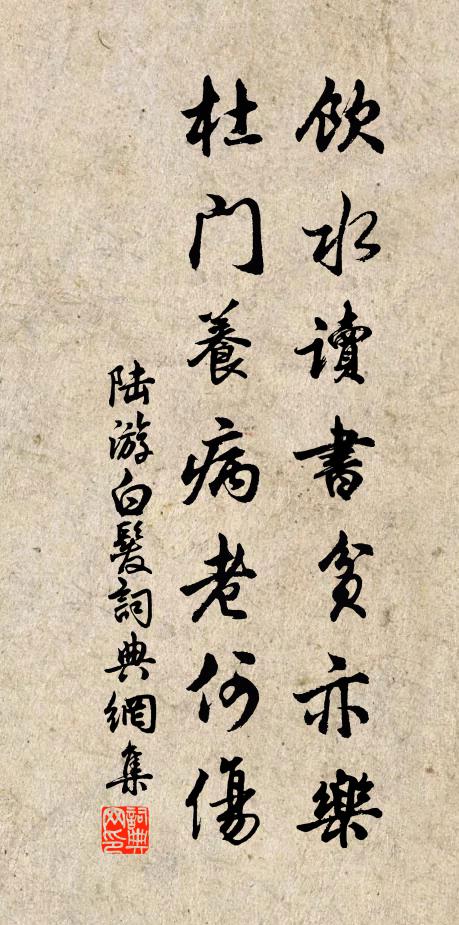 飲水讀書貧亦樂
杜門養病老何傷
陸游白髮詞典網集
詞典網印